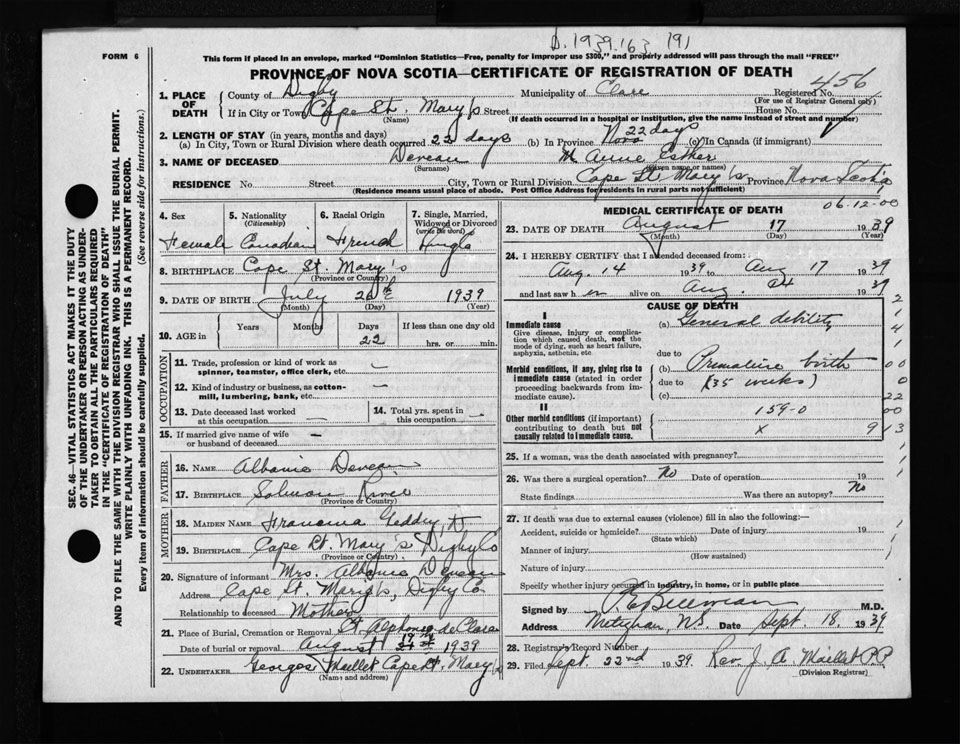 D. 1939. 163 191
This form if placed in an envelope, marked "Dominion Statistics—Free, penalty for improper use $300," and properly addressed will pass through the mail "FREE"
FORM 6
PROVINCE OF NOVA SCOTIA—CERTIFICATE OF REGISTRATION OF DEATH
456
SEC. 46—VITAL STATISTICS ACT MAKES IT THE DUTY
OF THE UNDERTAKER OR PERSON ACTING AS UNDER-
TAKER TO OBTAIN ALL THE PARTICULARS REQUIRED
IN THE "CERTIFICATE OF REGISTRATION OF DEATH"
AND TO FILE THE SAME WITH THE DIVISION REGISTRAR WHO SHALL ISSUE THE BURIAL PERMIT.
WRITE PLAINLY WITH UNFADING INK. THIS IS A PERMANENT RECORD.
Every item of information should be carefully supplied. (See reverse side for instructions.)
1. PLACE OF DEATH County of Digby Municipality of Clare Registered No.
(For use of Registrar General only)
If in City or Town Cape St. Mary's Street House No.
(Name) (If death occurred in a hospital or institution, give the name instead of street and number)
2. LENGTH OF STAY (in years, months and days)
(a) In City, Town or Rural Division where death occurred 22 days (b) In Province Nova 22 days (c) In Canada (if immigrant)
3. NAME OF DECEASED Deveau M. Anne Esther
(Surname) (Given name or names)
RESIDENCE No. Street City, Town or Rural Division Cape St. Mary's Province Nova Scotia
(Residence means usual place of abode. Post Office Address for residents in rural parts not sufficient)
06-12-00
4. Sex Female
5. Nationality (Citizenship) Canadian
6. Racial Origin French
7. Single, Married, Widowed or Divorced (write the word) Single
8. BIRTHPLACE Cape St. Mary's
(Province or Country)
9. DATE OF BIRTH July 26th 1939
(Month) (Day) (Year)
10. AGE in Years Months Days 22 If less than one day hrs. or min.
OCCUPATION
11. Trade, profession or kind of work as
spinner, teamster, office clerk, etc. —
12. Kind of industry or business, as cotton-
mill, lumbering, bank, etc. —
13. Date deceased last worked at this occupation —
14. Total yrs. spent in this occupation —
15. If married give name of wife or husband of deceased —
FATHER
16. NAME Albanie Deveau
17. BIRTHPLACE Salmon River
(Province or Country)
MOTHER
18. MAIDEN NAME
19. BIRTHPLACE Cape St. Mary's Digby Co
(Province or Country)
20. Signature of informant Mrs. Albanie Deveau
Address Cape St. Mary's, Digby Co
Relationship to deceased Mother
21. Place of Burial, Cremation or Removal St Alphonse de Clare
Date of burial or removal August 1939
22. UNDERTAKER Georges Maillet Cape St. Mary's
(Name and address)
MEDICAL CERTIFICATE OF DEATH
23. DATE OF DEATH August 17 1939
(Month) (Day) (Year)
24. I HEREBY CERTIFY that I attended deceased from:
Aug. 14 1939 to Aug 17 1939
and last saw her alive on Aug. 1939
CAUSE OF DEATH
I
Immediate cause
Give disease, injury or complica-
tion which caused death, not the
mode of dying, such as heart failure,
asphyxia, asthenia, etc
(a) General debility
due to
Morbid conditions, if any, giving rise to
immediate cause (stated in order
proceeding backwards from im-
mediate cause).
(b) Premature birth
due to (35 weeks)
(c)
II
Other morbid conditions (if important)
contributing to death but not
causally related to immediate cause.
159-0
x
25. If a woman, was the death associated with pregnancy?
26. Was there a surgical operation? No Date of operation 19
State findings Was there an autopsy? No
27. If death was due to external causes (violence) fill in also the following:—
Accident, suicide or homicide? Date of injury 19
(State which)
Manner of injury
(How sustained)
Nature of injury
Specify whether injury occurred in industry, in home, or in public place
Signed by M.D.
Address Meteghan, N.S. Date Sept. 18, 1939
28. Registrar's Record Number
29. Filed Sept. 22nd 1939. Rev. J. A. Maillet P.P.
(Division Registrar)